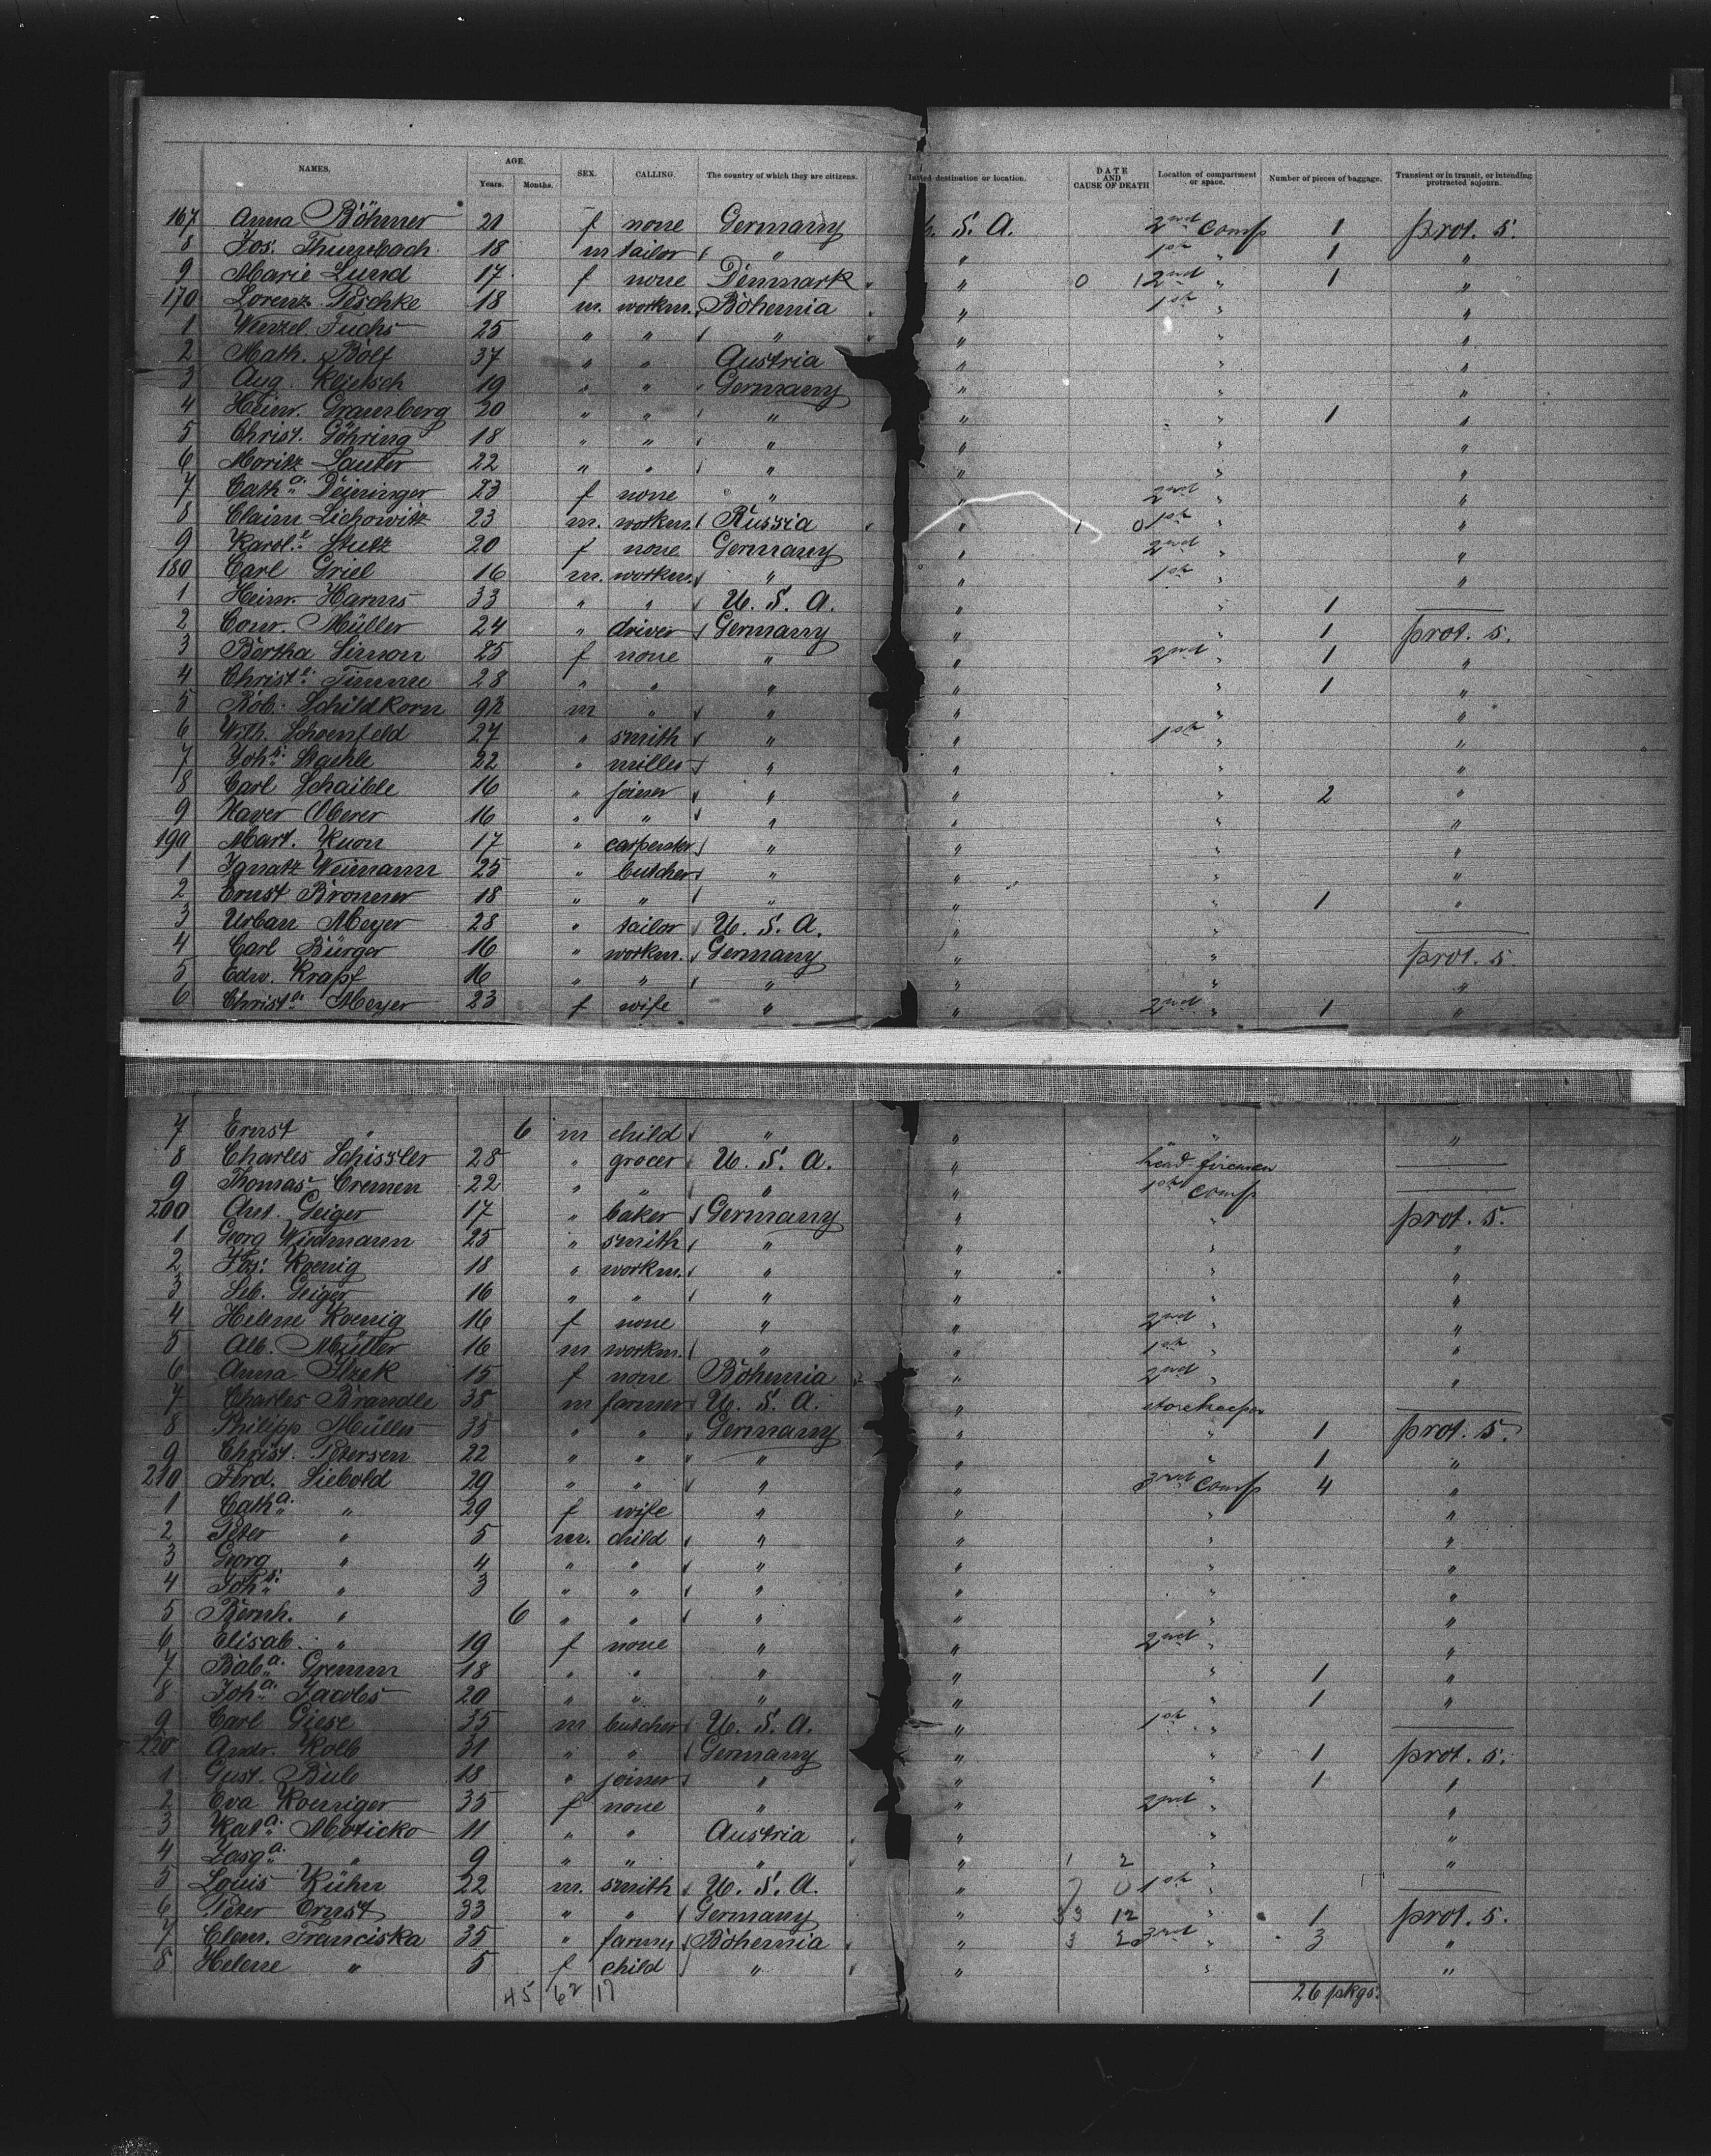 NAMES. AGE. Years. Months. SEX. CALLING. The country of which they are citizens. Intended destination or location. DATE AND CAUSE OF DEATH Location of compartment or space. Number of pieces of baggage. Transient or in transit, or intending protracted sojourn.
167 Anna Böhmer 21 f none Germany U. S. A. 2nd comp 1 prot. s.
8 Jos. Thumbach 18 m tailor " " 1st " 1 "
9 Marie Lund 17 f none Denmark " 0 1 2nd " 1 "
170 Lorenz Peschke 18 m. workm. Bohemia " 1st " "
1 Wenzel Fuchs 25 " " " " " "
2 Math. Bolf 37 " " Austria " " "
3 Aug. Klietsch 19 " " Germany " " "
4 Heinr. Gramberg 20 " " " " " 1 "
5 Christ. Göhring 18 " " " " " "
6 Moritz Lauter 22 " " " " " "
7 Catha. Deininger 23 f none " " 2nd " "
8 Claim Lichowitz 23 m. workm. Russia " 1 0 1st " "
9 Karole. Stutz 20 f none Germany " 2nd " "
180 Carl Griel 16 m. workm. " " 1st " "
1 Heinr. Harms 33 " " U. S. A. " " 1 —
2 Conr. Müller 24 " driver Germany " " 1 prot. s.
3 Bertha Simon 25 f none " " 2nd " 1 "
4 Christe. Timme 28 " " " " " 1 "
5 Rob. Schildkorn 9½ m " " " " "
6 Wilh. Schoenfeld 27 " smith " " 1st " "
7 Johs. Staehle 22 " miller " " " "
8 Carl Schaible 16 " joiner " " " 2 "
9 Xaver Oberer 16 " " " " " "
190 Mart. Kuon 17 " carpenter " " " "
1 Ignatz Weimann 25 " butcher " " " "
2 Ernst Bronner 18 " " " " " 1 "
3 Urban Meyer 28 " tailor U. S. A. " " —
4 Carl Bürger 16 " workm. Germany " " prot. s
5 Edw. Krapf 16 " " " " " "
6 Christe. Meyer 23 f wife " " 2nd " 1 "
7 Ernst " 6 m child " " " "
8 Charles Schissler 28 " grocer U. S. A. " head firemen —
9 Thomas Cremen 22 " " " " 1st comp —
200 Ant. Geiger 17 " baker Germany " " prot. s.
1 Georg Widmann 25 " smith " " " "
2 Jos. Koenig 18 " workm. " " " "
3 Seb. Geiger 16 " " " " " "
4 Helene Koenig 16 f none " " 2nd " "
5 Alb. Müller 16 m workm. " " 1st " "
6 Anna 15 f none Bohemia " 2nd " "
7 Charles Brandle 38 m farmer U. S. A. " storekeeper —
8 Philipp Müller 35 " " Germany " " 1 prot. s.
9 Christ. Petersen 22 " " " " " 1 "
210 Ferd. Siebold 29 " " " " 3rd comp 4 "
1 Catha. " 29 f wife " " " "
2 Peter " 5 m. child " " " "
3 Georg " 4 " " " " " "
4 Johs. " 3 " " " " " "
5 Bernh. " 6 " " " " " "
6 Elisab. " 19 f none " " 2nd " "
7 Baba. Gremm 18 " " " " " 1 "
8 Joha. Jacobs 20 " " " " " 1 "
9 Carl Giese 35 m butcher U. S. A. " 1st " —
220 Andr. Kolb 31 " " Germany " " 1 prot. s.
1 Gust. Bub 18 " joiner " " " 1 "
2 Eva Koeniger 35 f none " " 2nd " "
3 Kata. Moticko 11 " " Austria " " "
4 " 9 " " " " 1 2 " "
5 Louis Kühn 22 m. smith U. S. A. " 1st " —
6 Peter Ernst 33 " " Germany " 33 12 " 1 prot. s.
7 Clem. Franciska 35 " farmer Bohemia " 3 2 3rd " 3 "
8 Helene " 5 f child " " " "
45 62 17 26 pkgs.